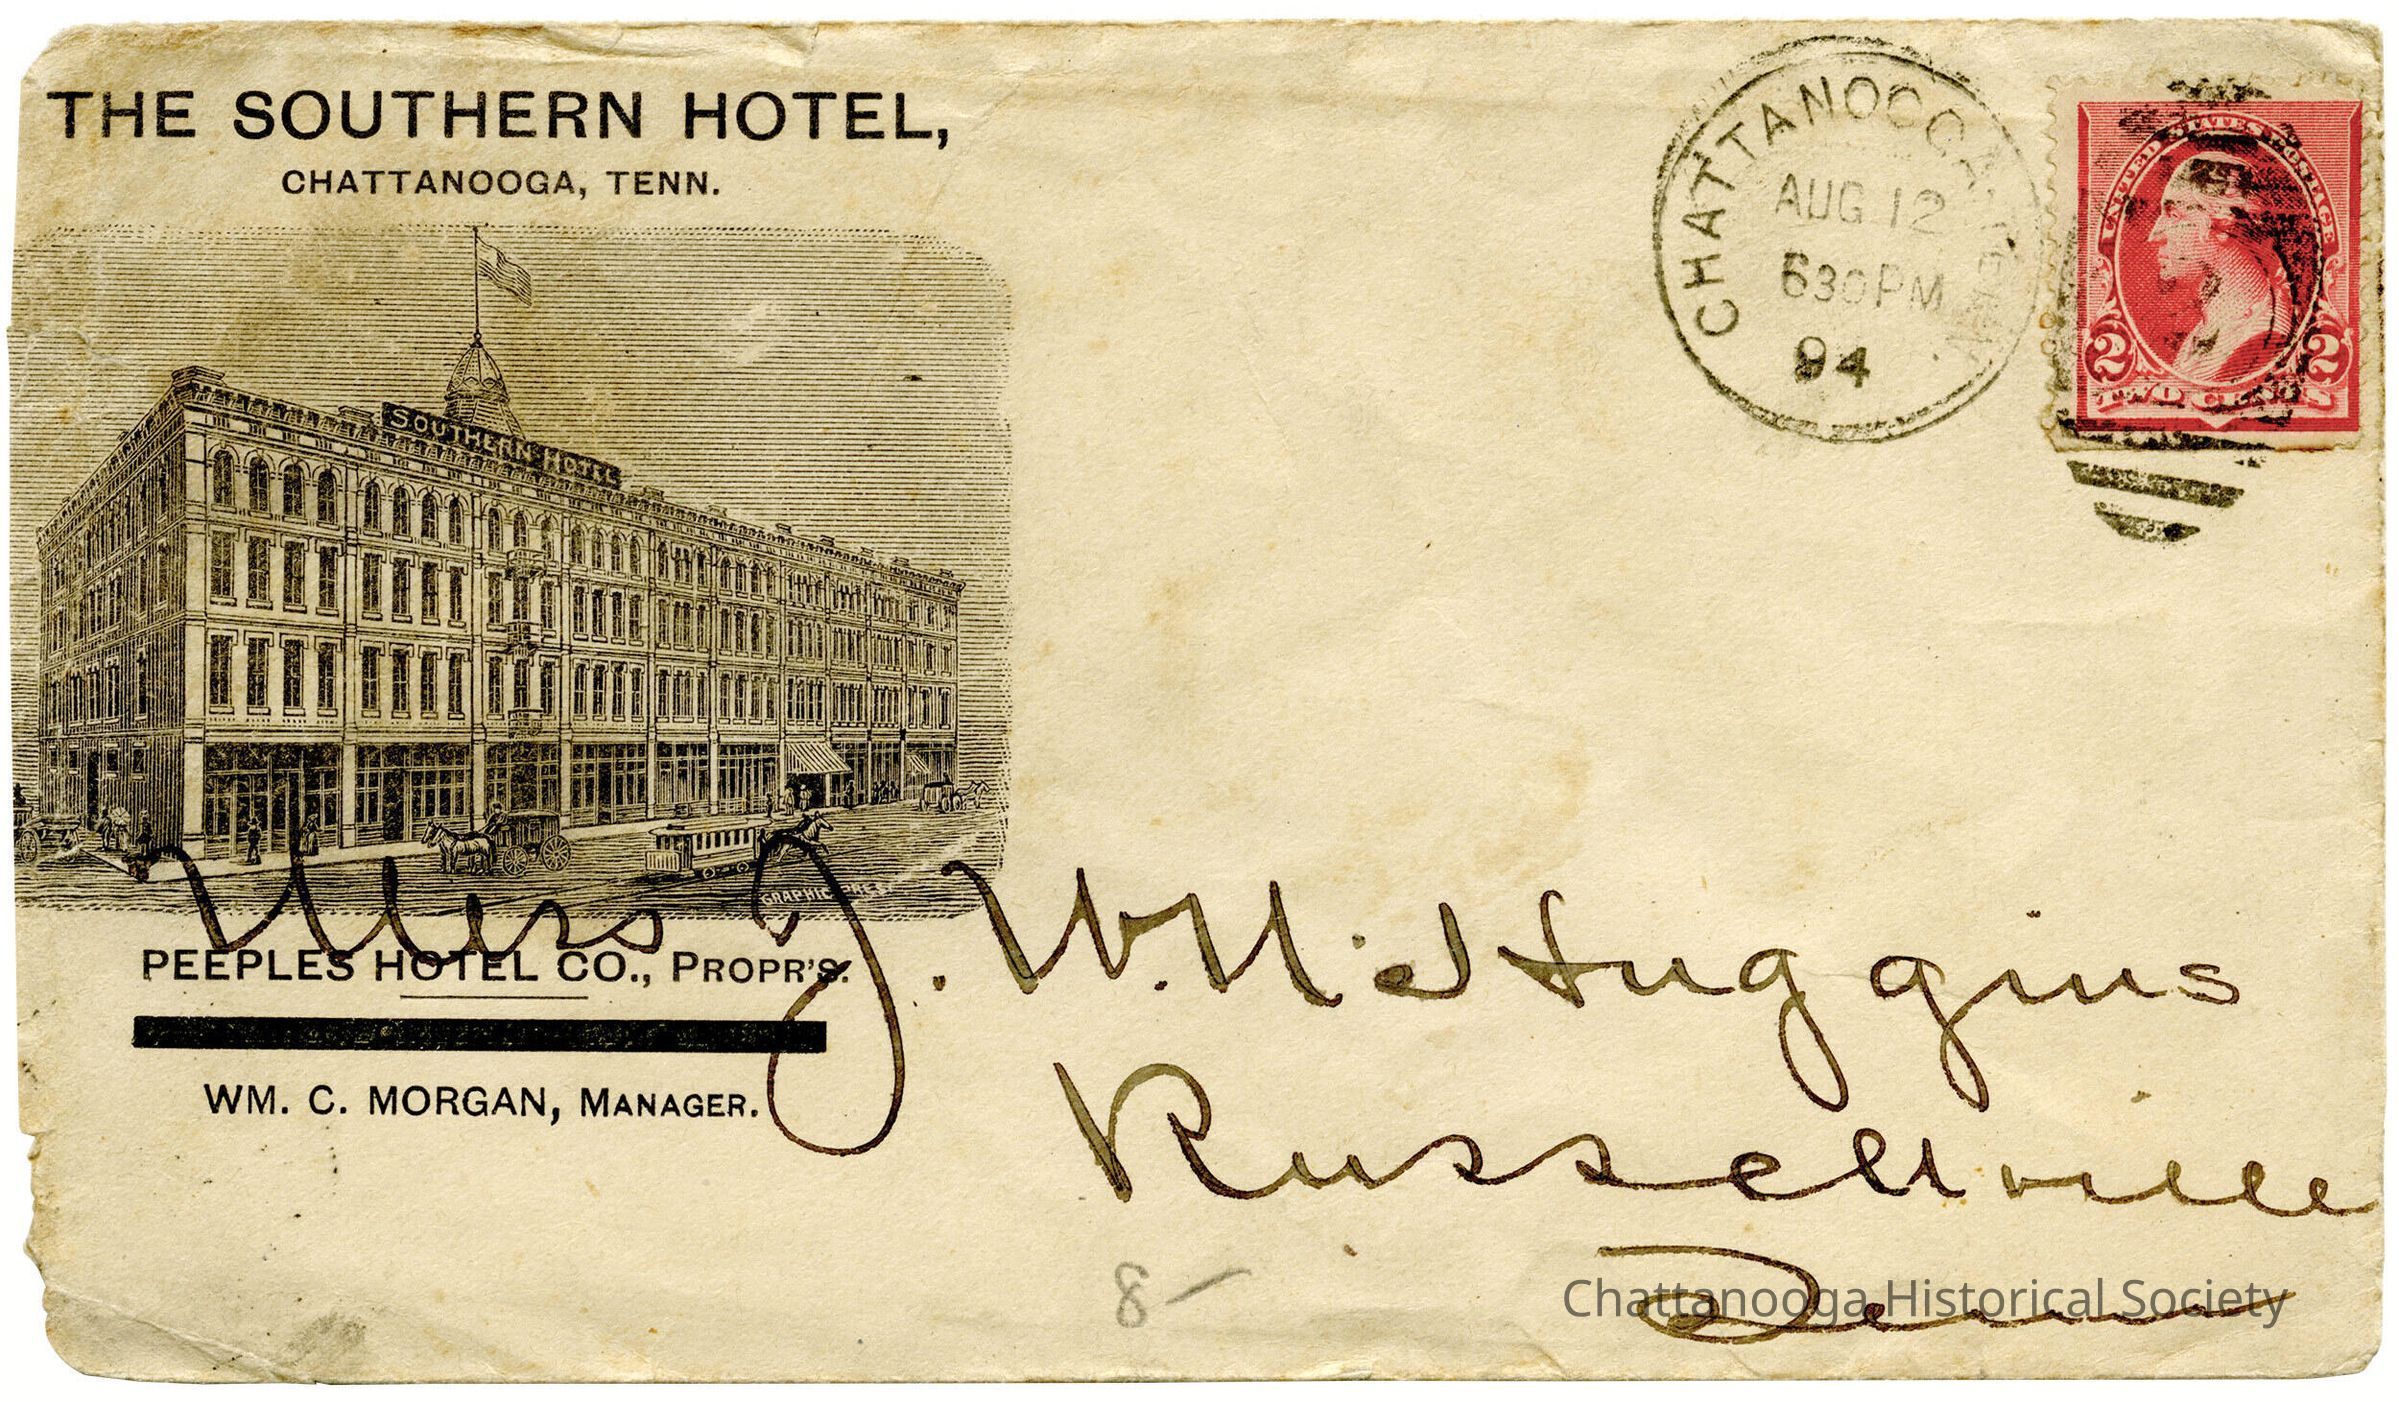 THE SOUTHERN HOTEL,
CHATTANOOGA, TENN.
SOUTHERN HOTEL
PEEPLES HOTEL CO., PROPR'S.
WM. C. MORGAN, MANAGER.
CHATTANOOGA, TENN.
AUG 12
630PM
94
UNITED STATES POSTAGE
2 2
TWO CENTS
Mrs J. W. N. Huggins
Russellville
Tenn
8 -
Chattanooga Historical Society